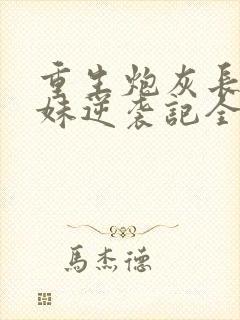 重生炮灰長
妹逆袭記全
馬杰德